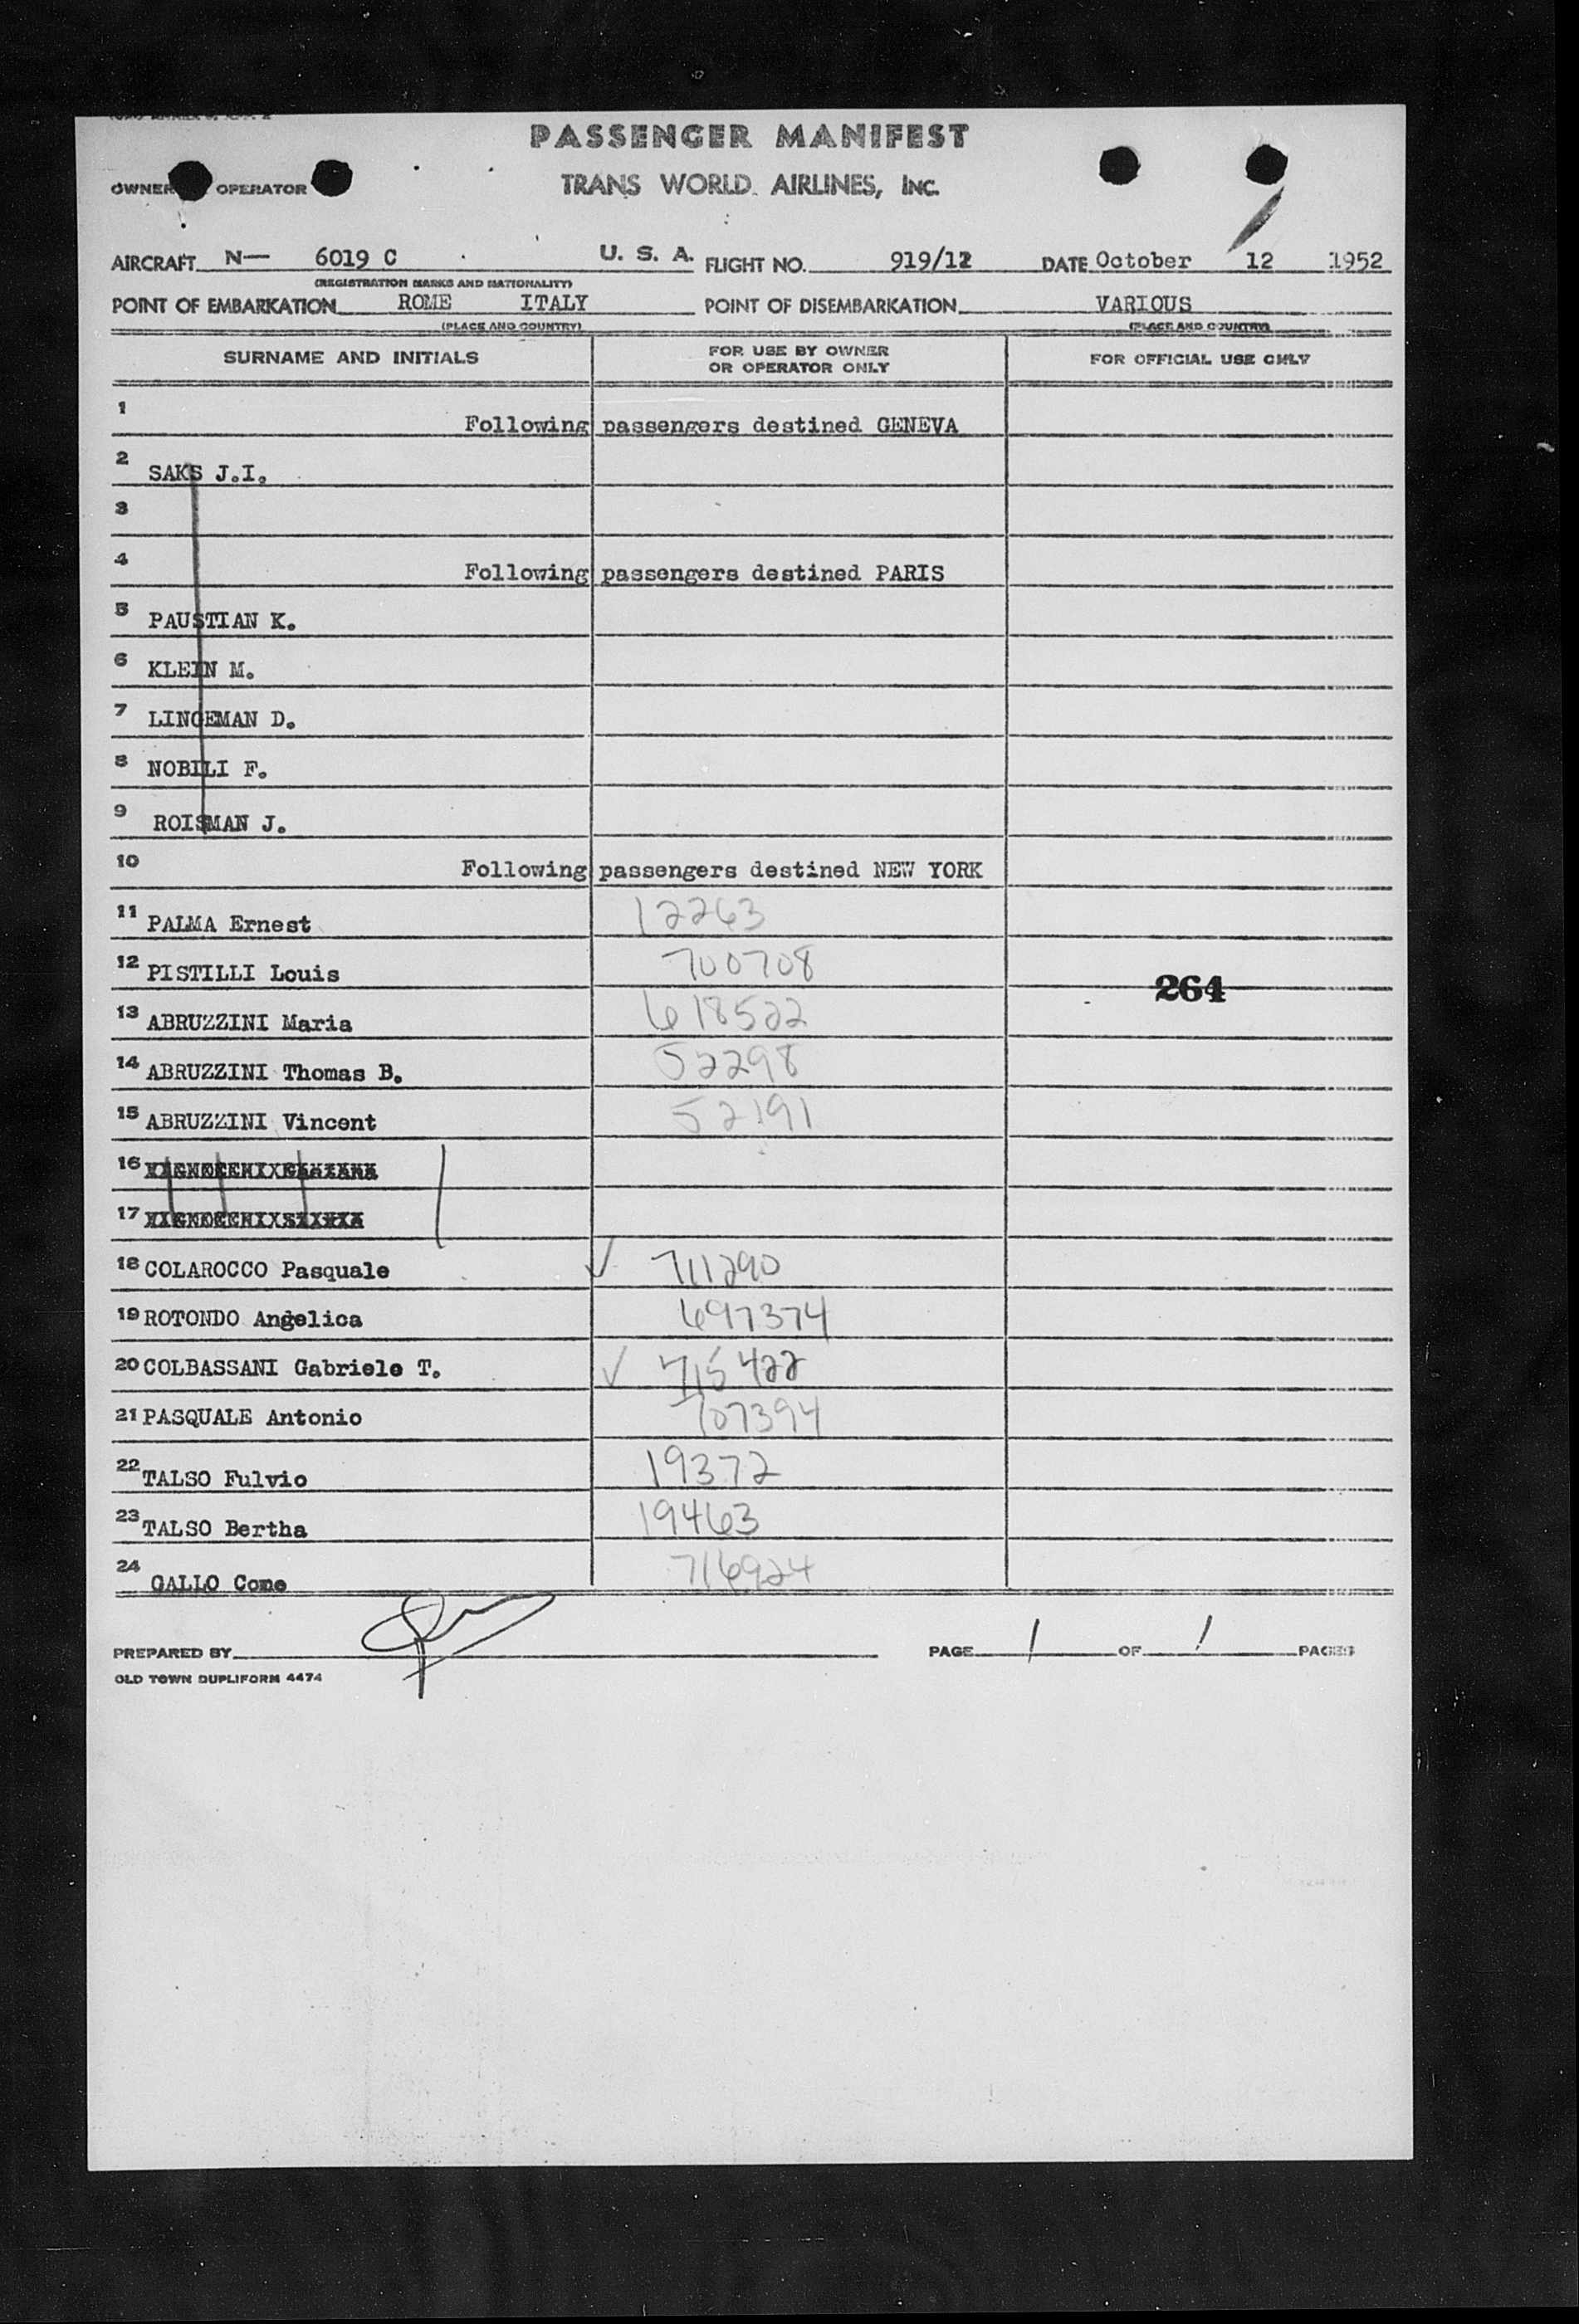 PASSENGER MANIFEST
OWNER OPERATOR
TRANS WORLD AIRLINES, INC.
AIRCRAFT N— 6019 C U. S. A. FLIGHT NO. 919/12 DATE October 12 1952
(REGISTRATION MARKS AND NATIONALITY)
POINT OF EMBARKATION ROME ITALY POINT OF DISEMBARKATION VARIOUS
(PLACE AND COUNTRY) (PLACE AND COUNTRY)
SURNAME AND INITIALS FOR USE BY OWNER OR OPERATOR ONLY FOR OFFICIAL USE ONLY
1 Following passengers destined GENEVA
2 SAKS J.I.
3
4 Following passengers destined PARIS
5 PAUSTIAN K.
6 KLEIN M.
7 LINGEMAN D.
8 NOBILI F.
9 ROISMAN J.
10 Following passengers destined NEW YORK
11 PALMA Ernest 12263
12 PISTILLI Louis 700708
264
13 ABRUZZINI Maria 618522
14 ABRUZZINI Thomas B. 52298
15 ABRUZZINI Vincent 52191
16
17
18 COLAROCCO Pasquale ✓ 711290
19 ROTONDO Angelica 697374
20 COLBASSANI Gabriele T. ✓ 715422
21 PASQUALE Antonio 707394
22 TALSO Fulvio 19372
23 TALSO Bertha 19463
24 GALLO Come 716924
PREPARED BY PAGE 1 OF 1 PAGES
OLD TOWN DUPLIFORM 4474